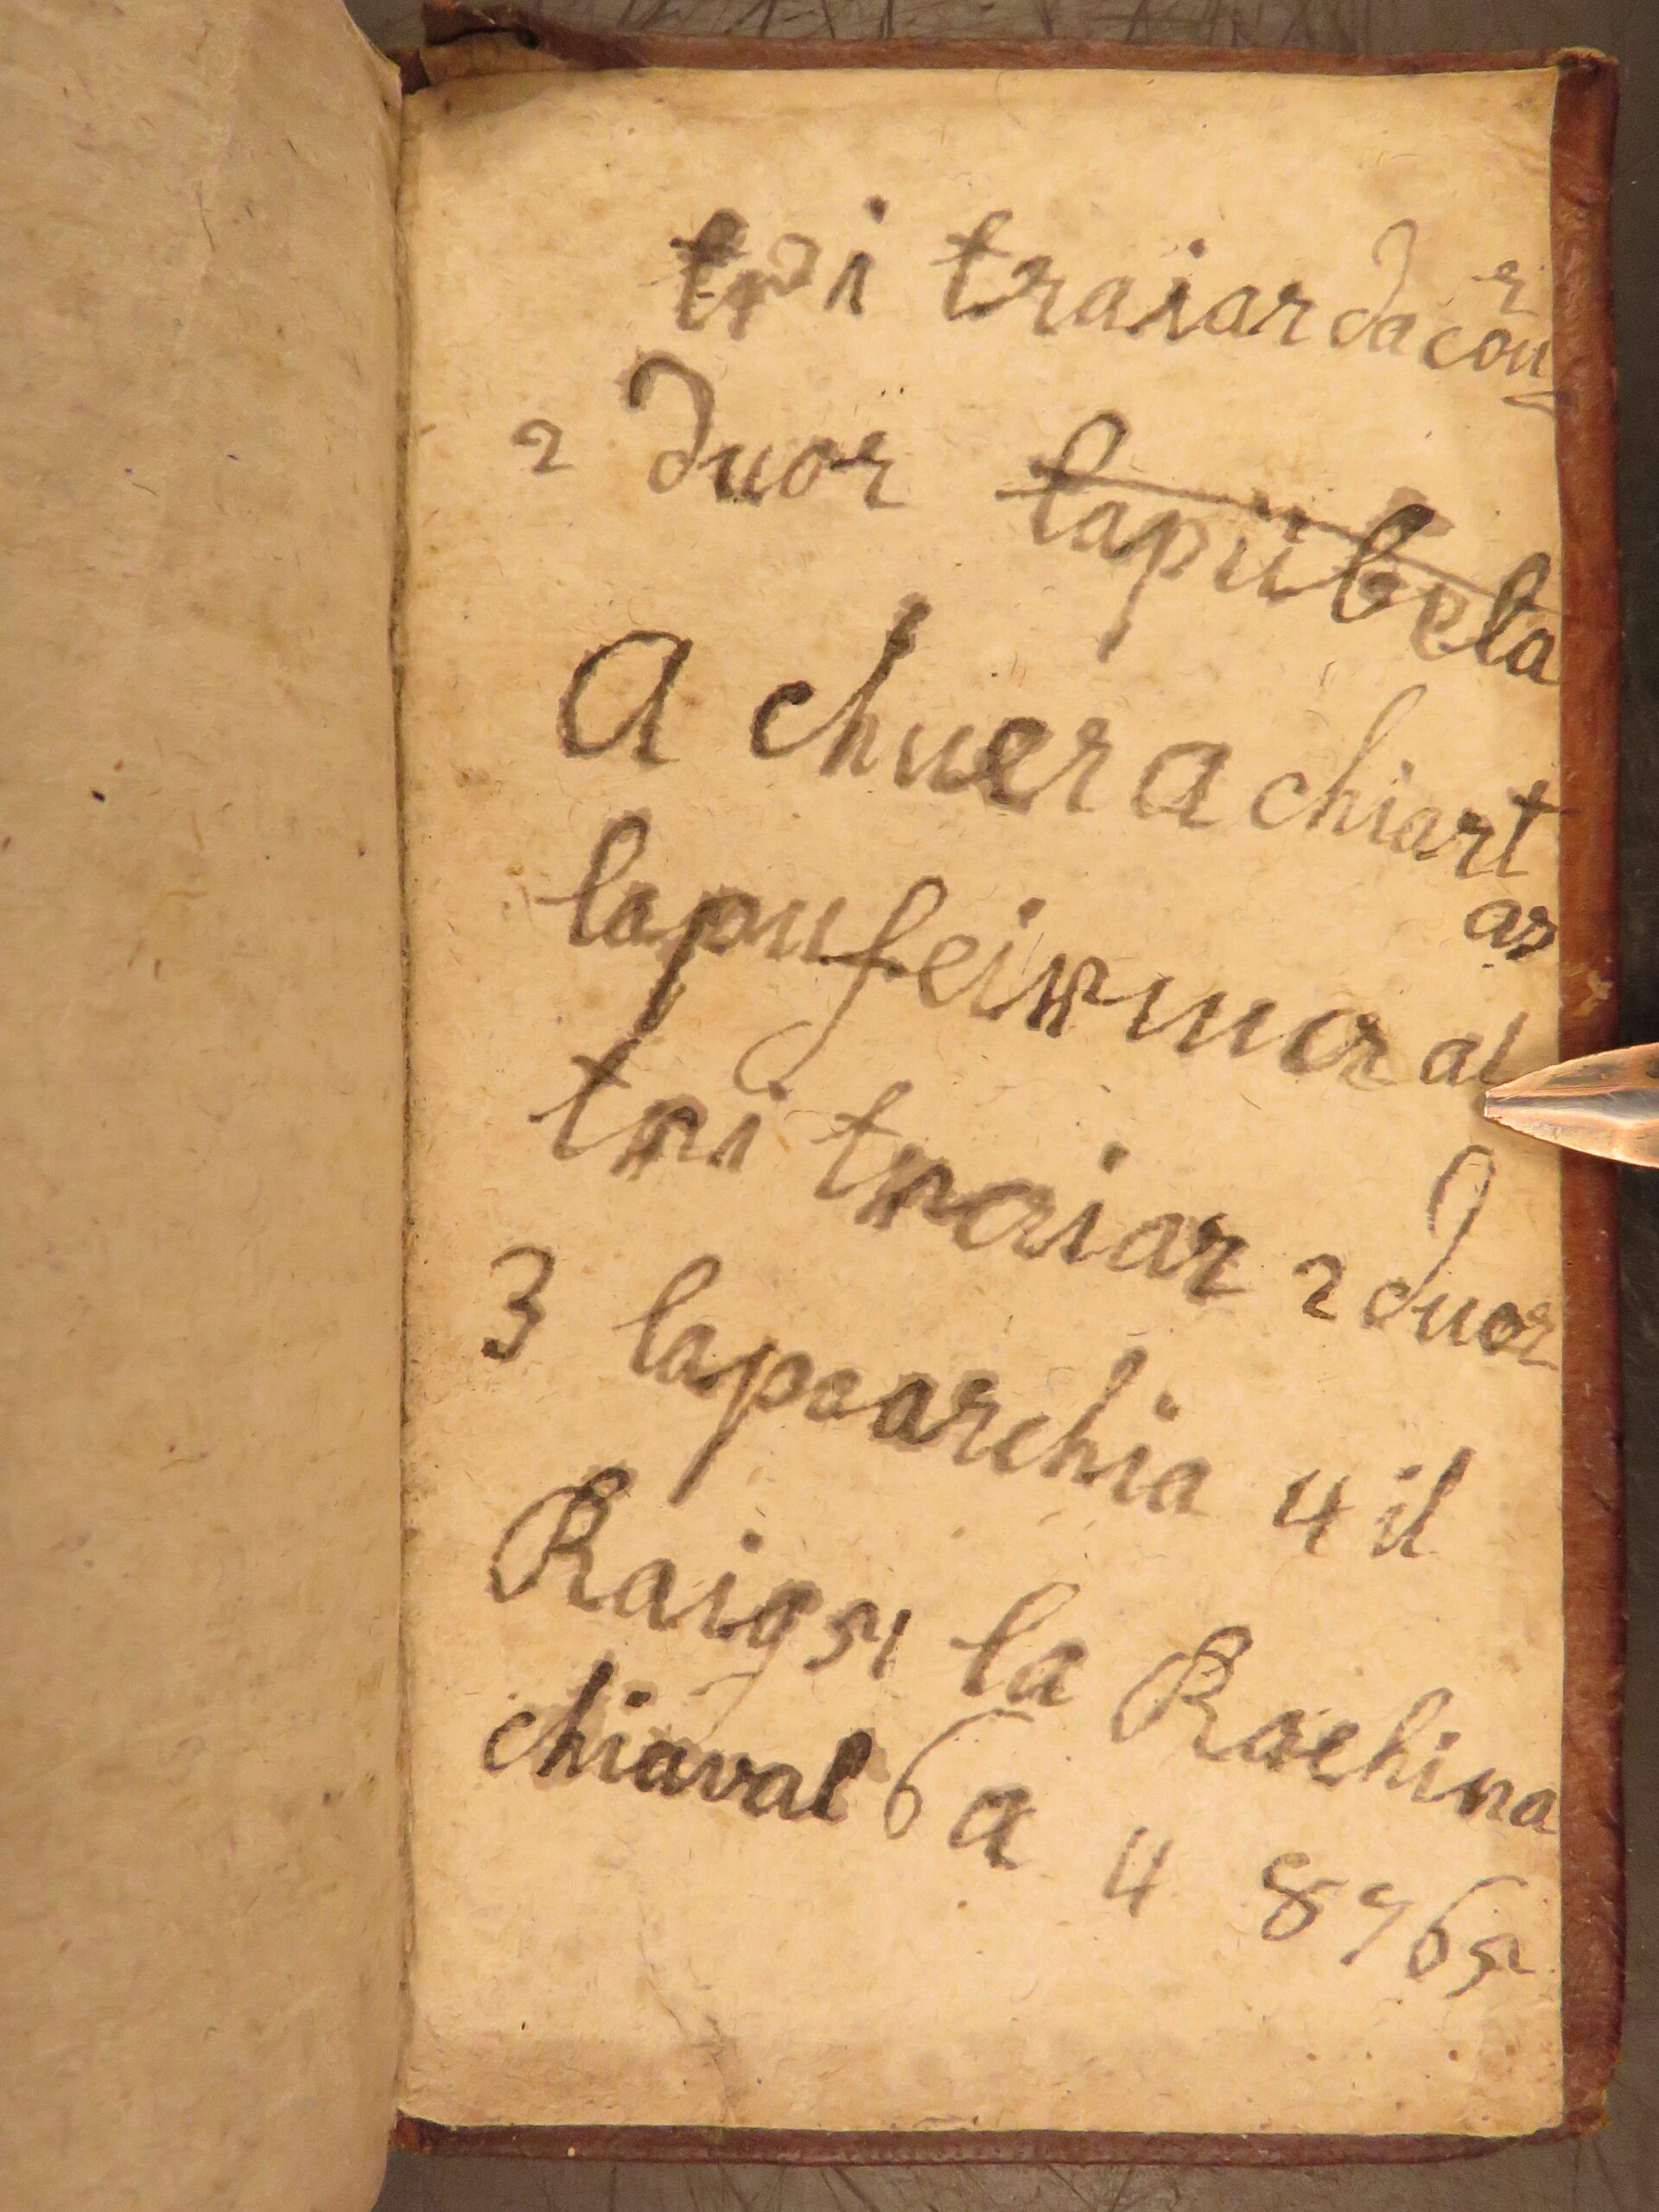 tri traiar da cour
2 duor lapübela
A chuera chiart
ar
lapufeirmar al
tri traiar 2 duor
3 lapaarchia 4 il
Raig 51 la Rachina
chiaval 6 a 4 8765